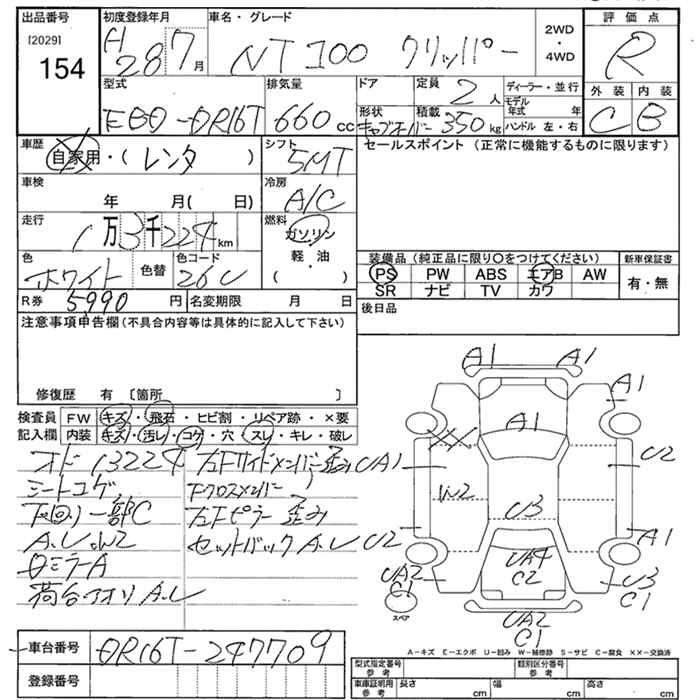 出品番号
[2029]
154
初度登録年月
H 28 7月
車名・グレード
NT100 クリッパー
2WD
・
4WD
評価点
R
外装 内装
C B
型式
EBD-DR16T
排気量
660 cc
ドア
形状
キャブオーバー
定員
2人
積載
350 kg
ディーラー・並行
モデル年式 年
ハンドル 左・右
車歴
自家用・(レンタ )
シフト
5MT
セールスポイント (正常に機能するものに限ります)
車検
年 月( 日)
冷房
A/C
走行
1万3千224km
燃料
ガソリン
軽油
・
( )
色
ホワイト
色替
色コード
26U
装備品(純正品に限り〇をつけてください)
新車保証書
PS PW ABS エアB AW
SR ナビ TV カワ
有・無
R券 5990円 名変期限 月 日
後日品
注意事項申告欄(不具合内容等は具体的に記入して下さい)
修復歴 有 〔箇所 〕
検査員
記入欄
FW キズ・飛石・ヒビ割・リペア跡・×要
内装 キズ・汚レ・コゲ・穴・スレ・キレ・破レ
オドー13224
シートコゲ
下回リ一部C
A.U.W2
ロミラーA
荷台アオリA.U
左Fサイドメンバー歪み
Fクロスメンバー 〃
左Fピラー歪み
セットバックA.U
A1 A1
A1
A1
XX
U2
UA1
W2
U3
U2
A1
UA4
C2
UA2
C1
U3
C1
UA2
C1
スペア
A-キズ E-エクボ U-凹み W-補修跡 S-サビ C-腐食 XX-交換済
車台番号 DR16T-247709
登録番号
型式指定番号
参考
類別区分番号
参考
車庫証明用
参考
長さ cm 幅 cm 高さ cm